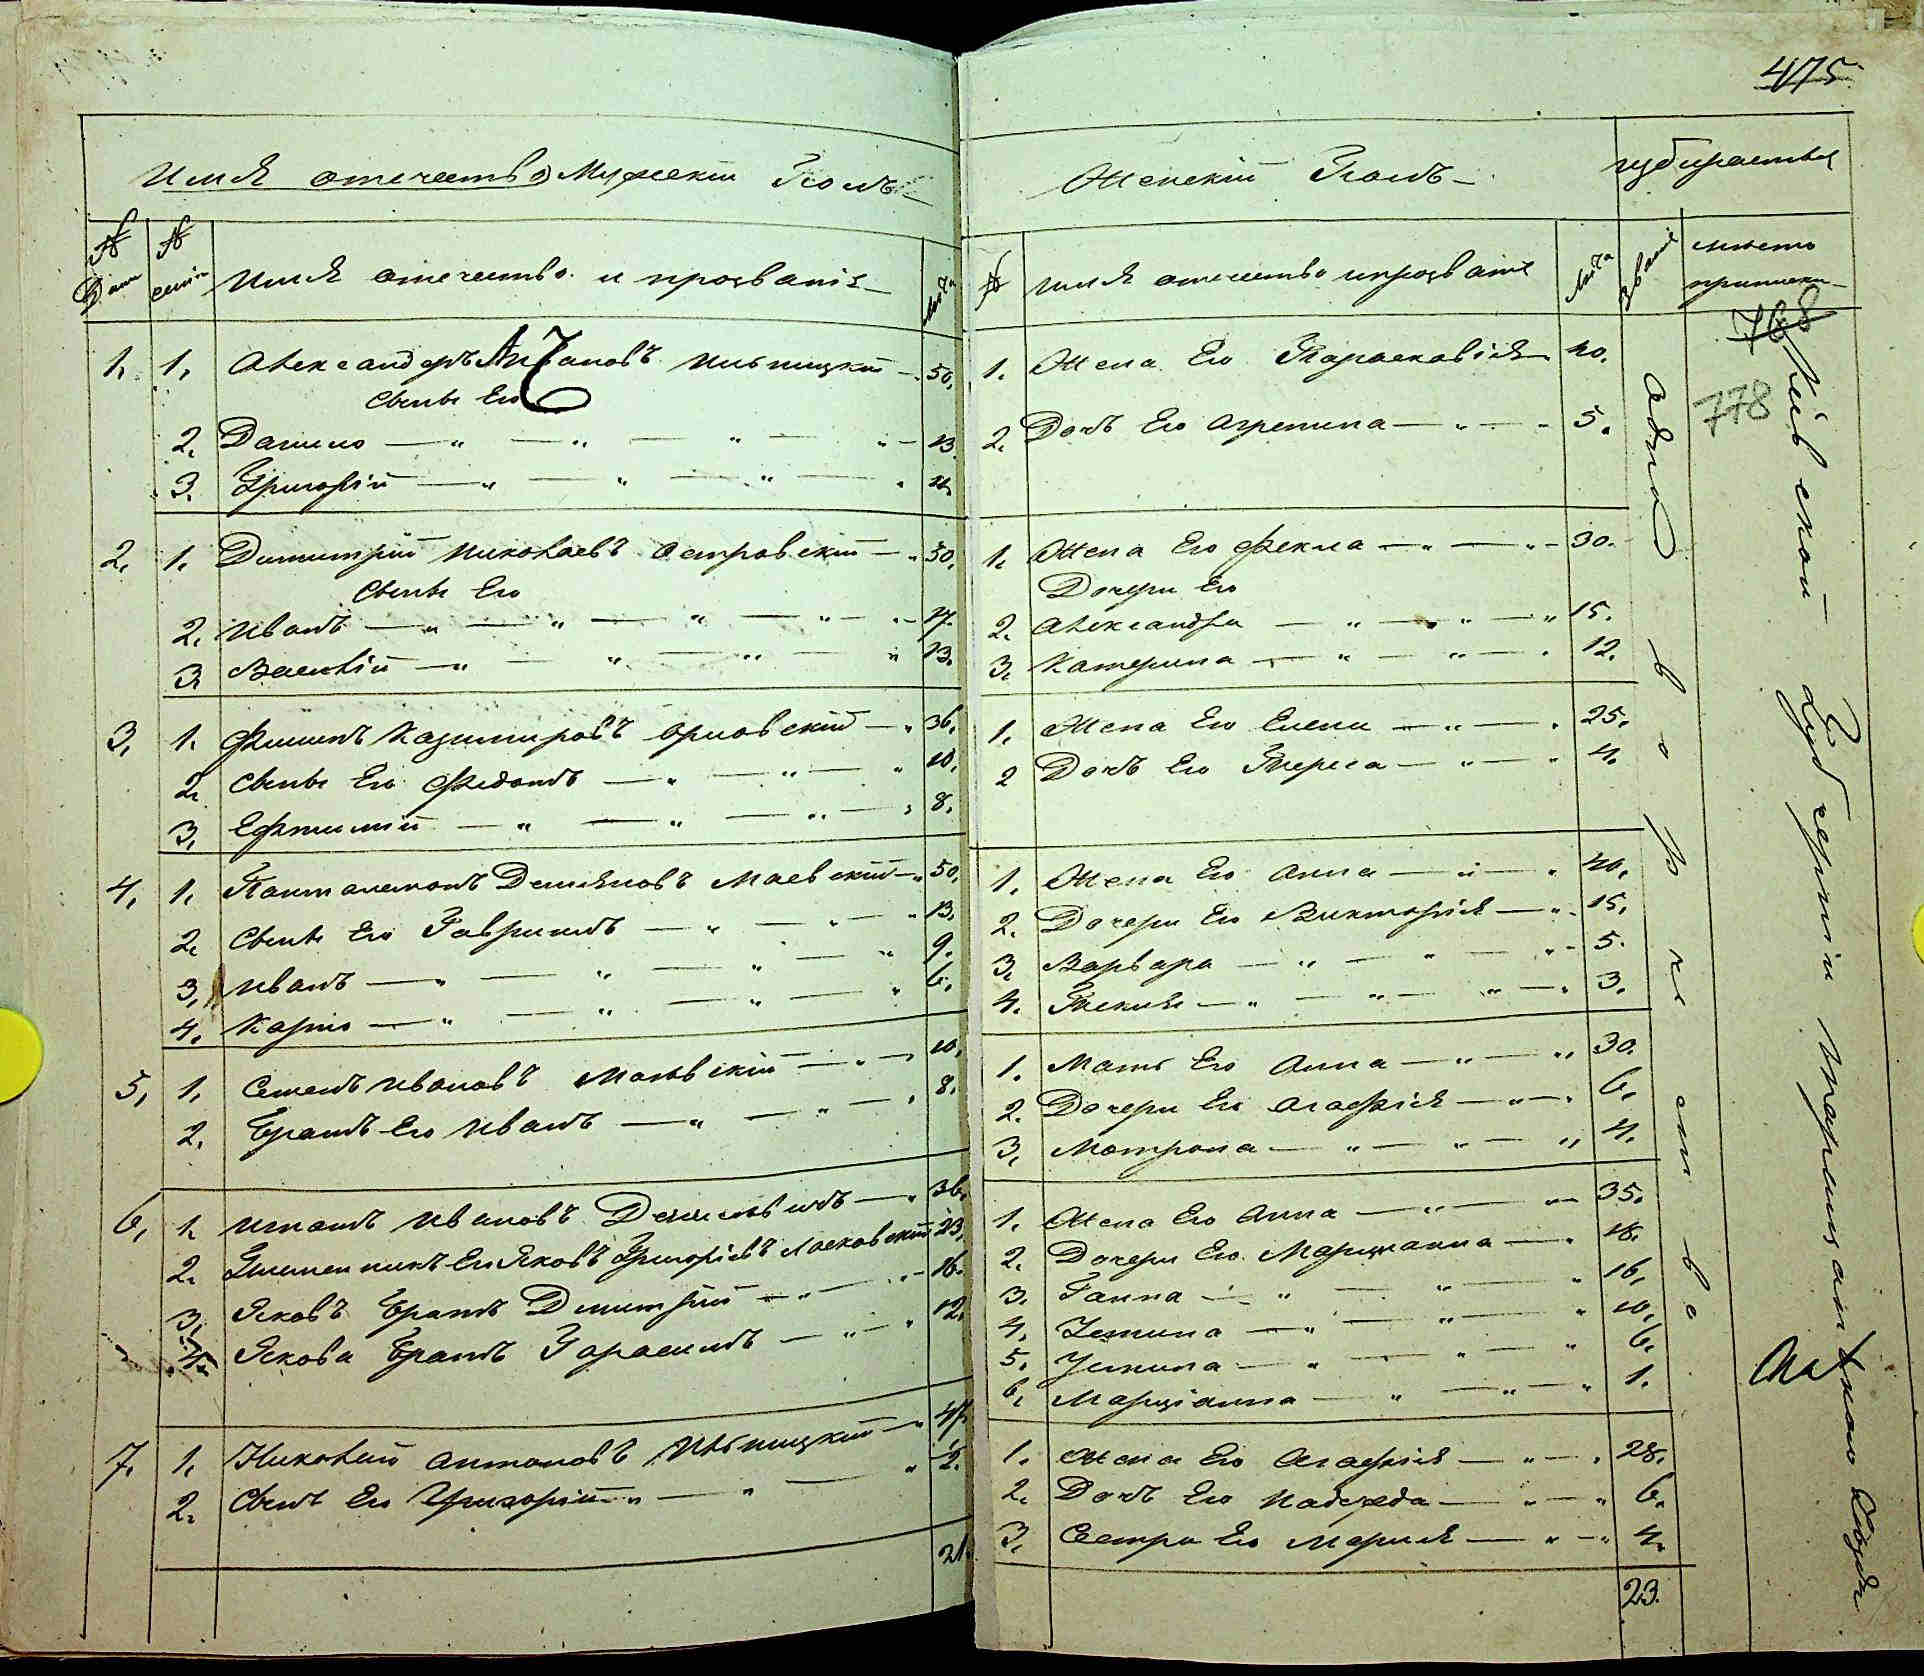 475
Имя отечество Мужескій Полъ
№ Дом
№ семіи
Имя отечество и прозваніе
лета
1. 1. Александеръ Антоновъ Ильницкій — 50.
Сыны Его
2. Данило — 13.
3. Григорій —
2. 1. Димитрій Николаевъ Островскій — 50.
Сыны Его
2. Иванъ — 17.
3. Василій — 13.
3. 1. Филипъ Казимировъ Орловскій — 36.
2. Сыны Его Федотъ — 10.
3. Ефтимій — 8.
4. 1. Панталемонъ Демяновъ Маевскій — 50.
2. Сыны Его Гавриилъ — 13.
3. Иванъ — 9.
4. Карпо — 6.
5. 1. Семенъ Ивановъ Мальвскій — 10.
2. Братъ Его Иванъ — 8.
6. 1. Игнатъ Ивановъ — 36.
2. Племенникъ Его Яковъ Григоріевъ Ласковскій 23.
3. Яковъ Братъ Димитрій — 16.
4. Якова Братъ Гарасимъ — 12.
7. 1. Николай Антоновъ Ильницкій — 47.
2. Сынъ Его Григорій — 2.
21.
Женскій Полъ
губираства
№
Имя отечество и прозвание
лета
Звание
место
приписки
1. Жена Его Параскавія — 40.
2. Дочь Его Агрепина — 5.
1. Жена Его Фекла — 30.
Дочери Его
2. Александра — 15.
3. Катерина — 12.
1. Жена Его Елена — 25.
2 Дочь Его Тереса — 4.
1. Жена Его Анна — 40.
2. Дочери Его Викторія — 15.
3. Варвара — 5.
4. Текля — 3.
1. Мать Его Анна — 30.
2. Дочери Его Агафія — 6.
3. Мотрона — 4.
1. Жена Его Анна — 35.
2. Дочери Его Марцианна — 18.
3. Ганна — 16.
4. — 10.
5. Устина — 6.
6. Марціанна — 1.
1. Жена Его Агафія — 28.
2. Дочь Его Надежда — 6.
3. Сестра Его Марія — 4.
23.
однодворкиство
768
778
Кіевской Губерніи